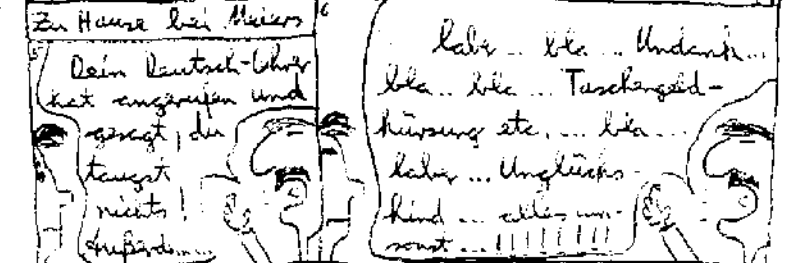 Zu Hause bei Meiers
Dein Deutsch-Lehrer
hat angerufen und
gesagt, du
taugst
nichts!
Außerdem...
laber .. bla ... Undank...
bla... bla ... Taschengeld-
kürzung etc, ... bla ...
laber ... Unglücks-
kind ... alles um-
sonst ... !!!!!!!